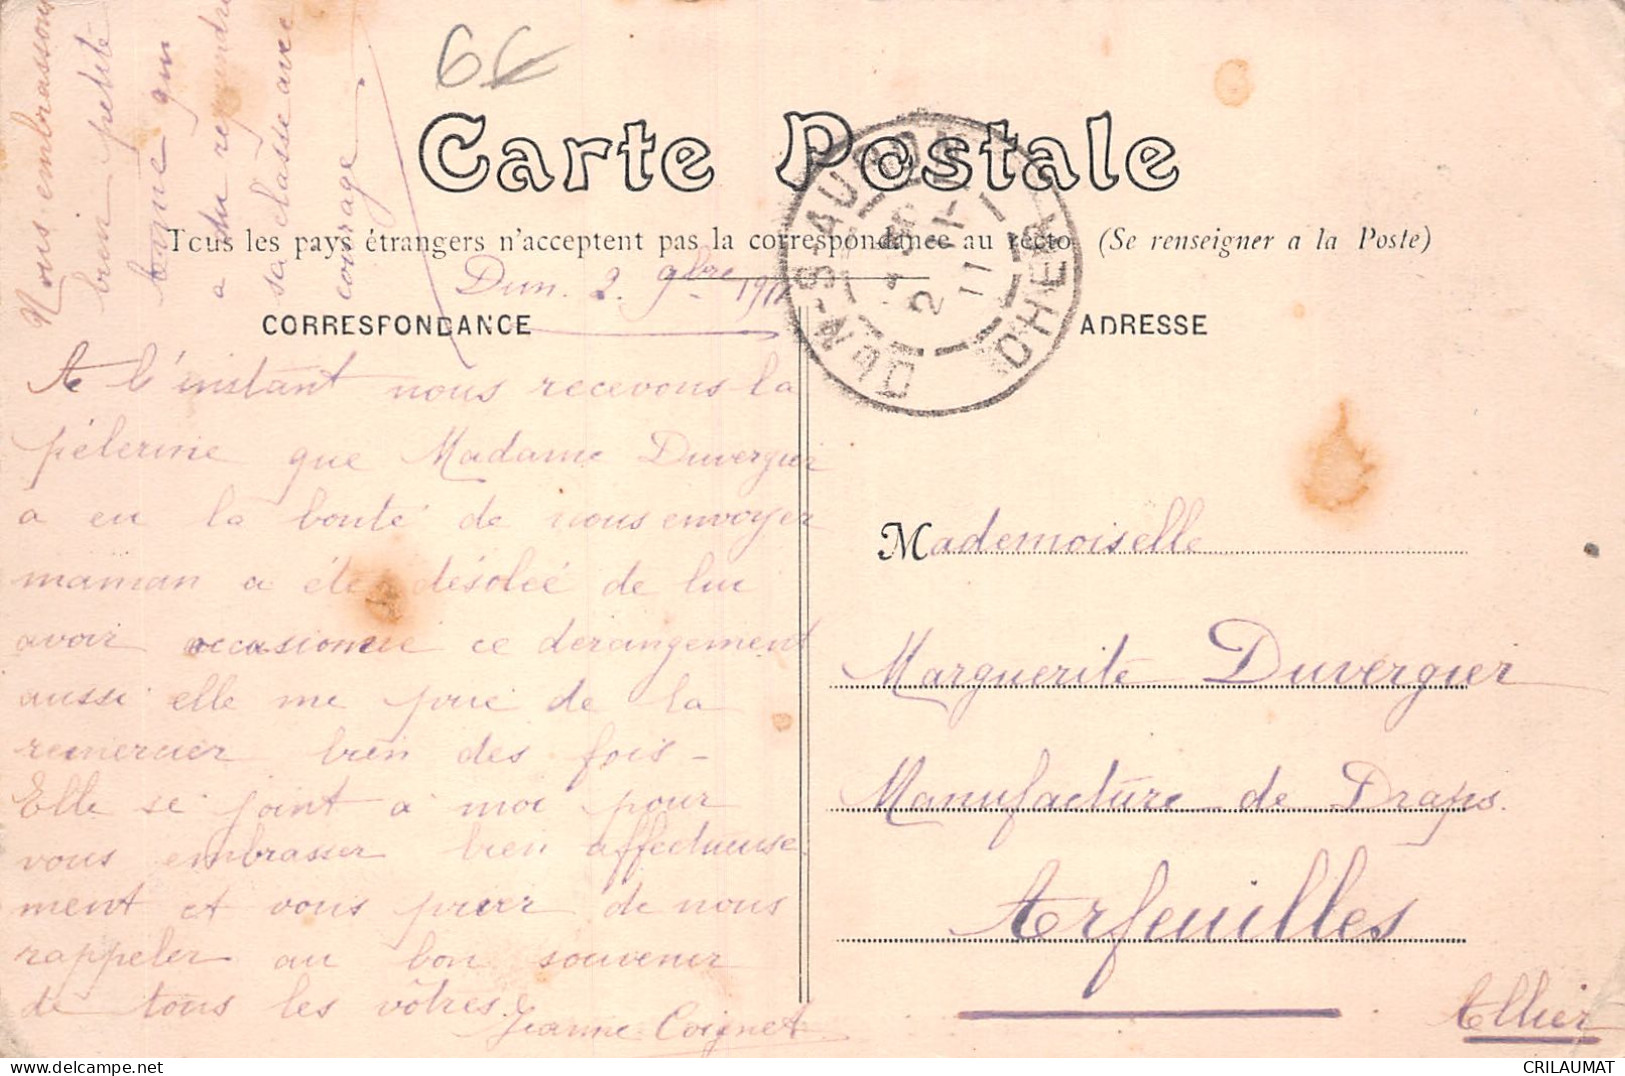 66
Carte Postale
Tous les pays étrangers n'acceptent pas la correspondance au recto (Se renseigner a la Poste)
CORRESPONDANCE
ADRESSE
DUN-S-AURON
2 - 11
11
CHER
Dun. 2. 9bre 1911
A l'instant nous recevons la
pélerine que Madame Duvergier
a eu la bonté de nous envoyer
maman a été désolée de lui
avoir occasionné ce dérangement
aussi elle me prie de la
remercier bien des fois -
Elle se joint à moi pour
vous embrasser bien affectueuse
ment et vous prier de nous
rappeler au bon souvenir
de tous les vôtres.
Jeanne Coignet
Nous embrassons
bien petite
Annie qui
a du reprendre
sa classe avec
courage.
Mademoiselle
Marguerite Duvergier
Manufacture de Draps.
Arfeuilles
Allier
CRILAUMAT